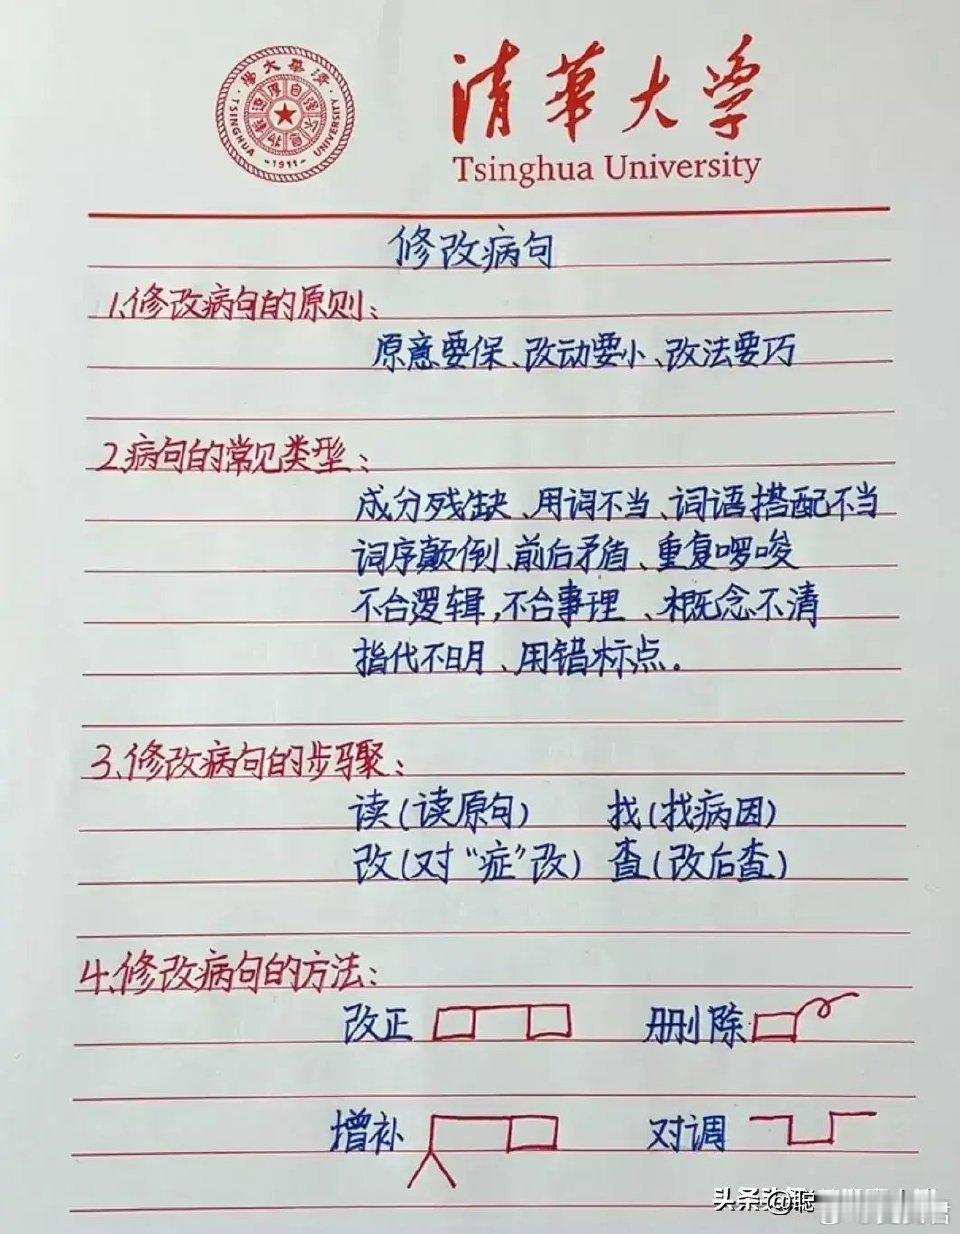 清華大学
Tsinghua University
TSINGHUA UNIVERSITY
-1911-
修改病句
1.修改病句的原则:
原意要保、改动要小、改法要巧
2.病句的常见类型:
成分残缺、用词不当、词语搭配不当
词序颠倒、前后矛盾、重复啰唆
不合逻辑,不合事理、概念不清
指代不明、用错标点。
3.修改病句的步骤:
读(读原句) 找(找病因)
改(对“症”改) 查(改后查)
4.修改病句的方法:
改正 删除
增补 对调
头条 @聪